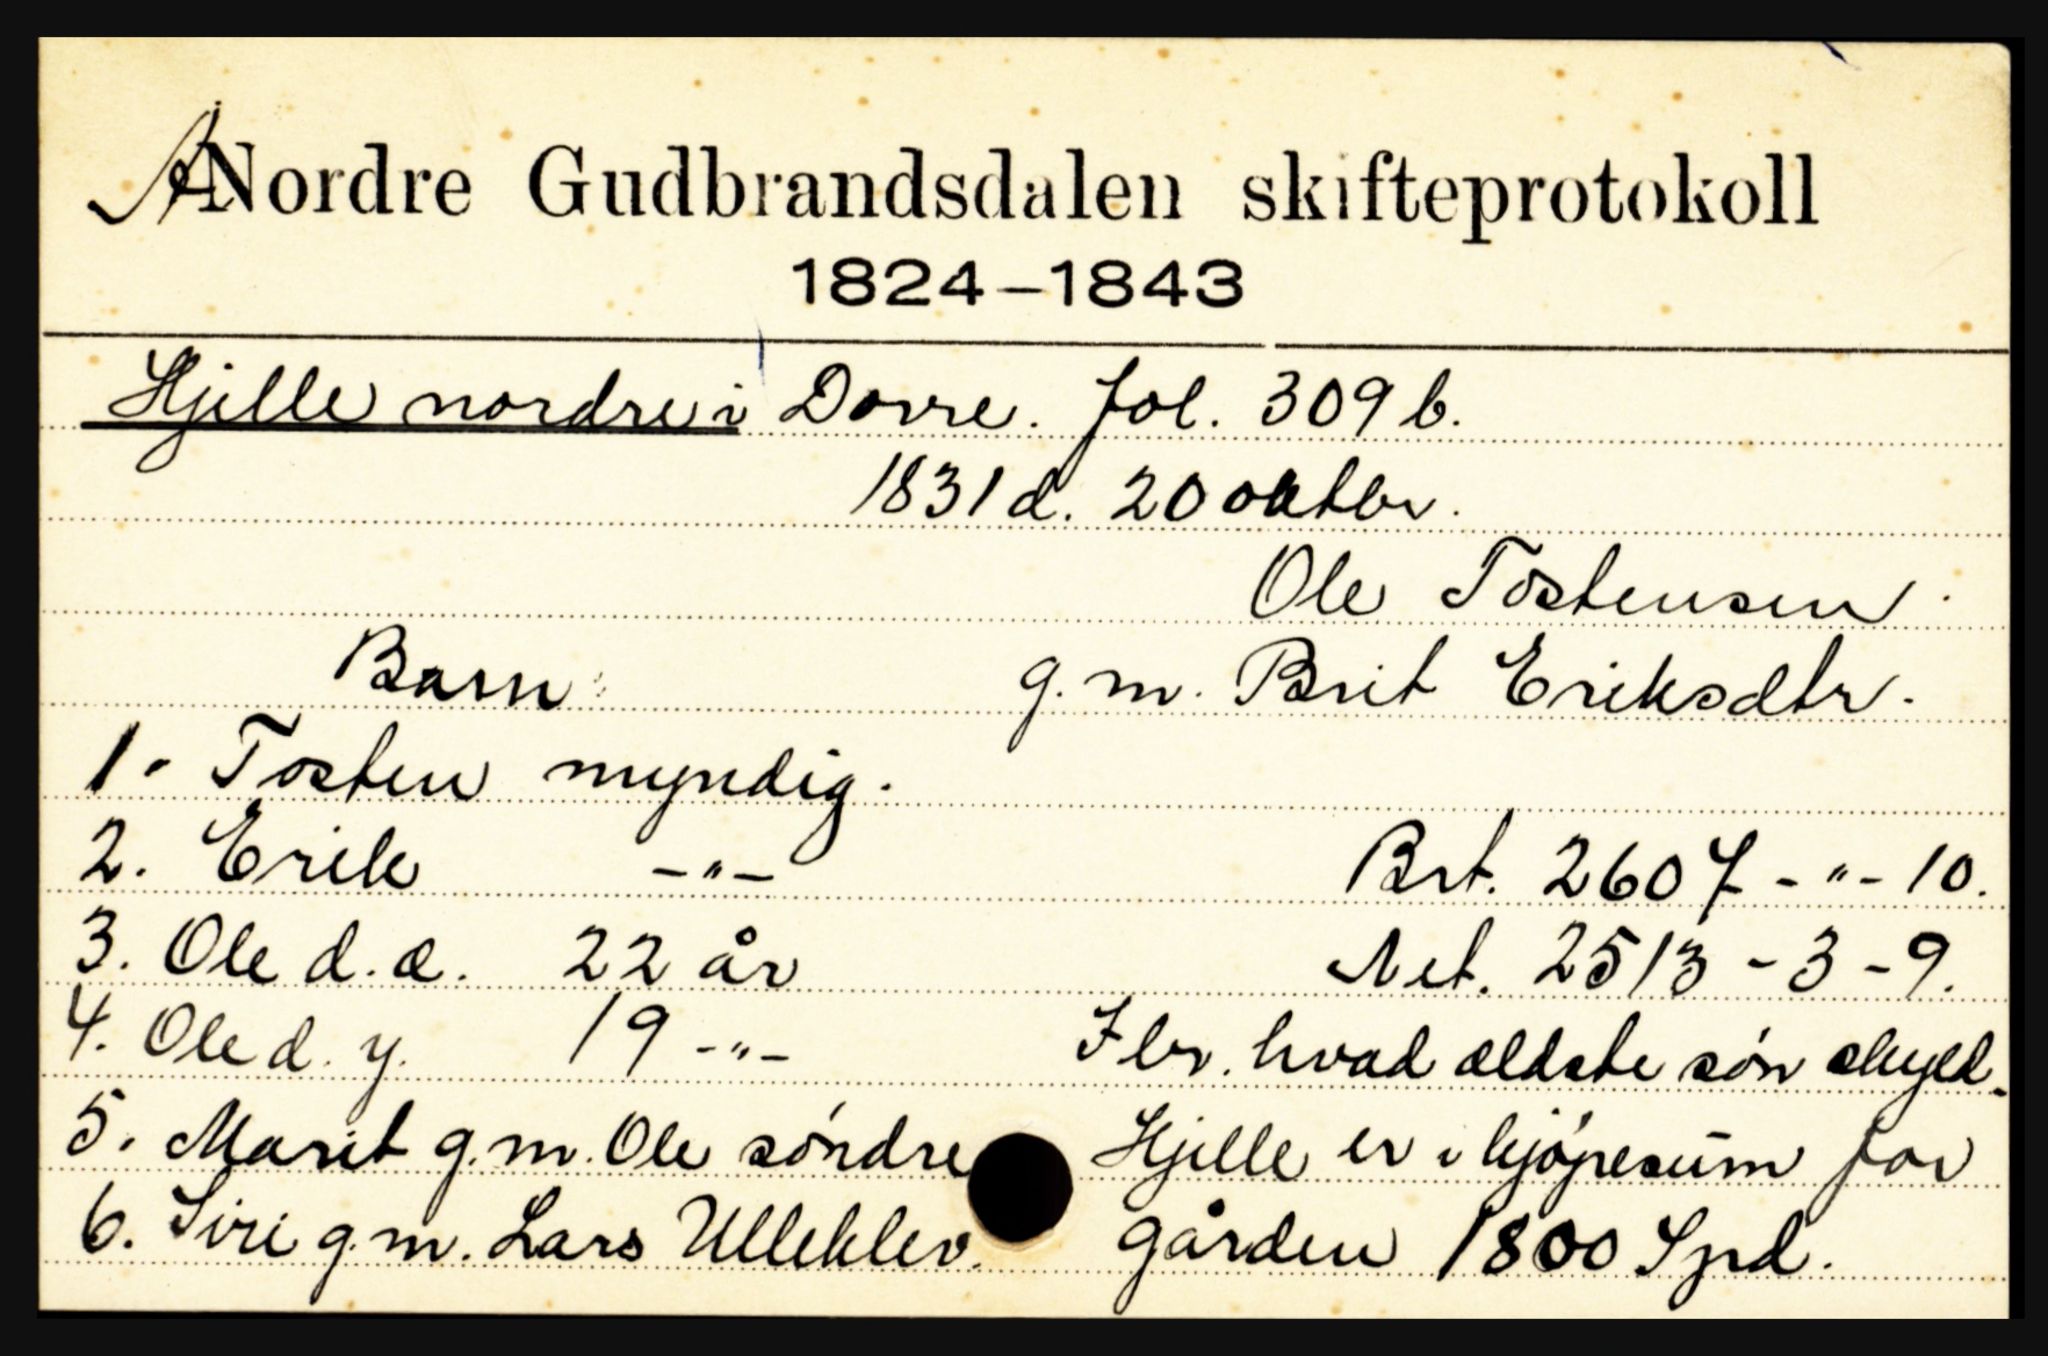 A Nordre Gudbrandsdalen skifteprotokoll
1824-1843
Hjelle nordre i Dovre. fol. 309 b.
1831 d. 20 oktbr.
Ole Tostensen
Barn: g.m. Brit Eriksdtr.
1. Tosten myndig.
2. Erik -"- Brt. 2607 -"- 10.
3. Ole d.æ. 22 år Net. 2513 - 3 - 9.
4. Ole d.y. 19 -"- Ibr. hvad ældste søn skyld.
5. Marit g.m. Ole søndre Hjelle er i kjøpesum for
6. Siri g.m. Lars Ulleklev. gården 1800 Spd.